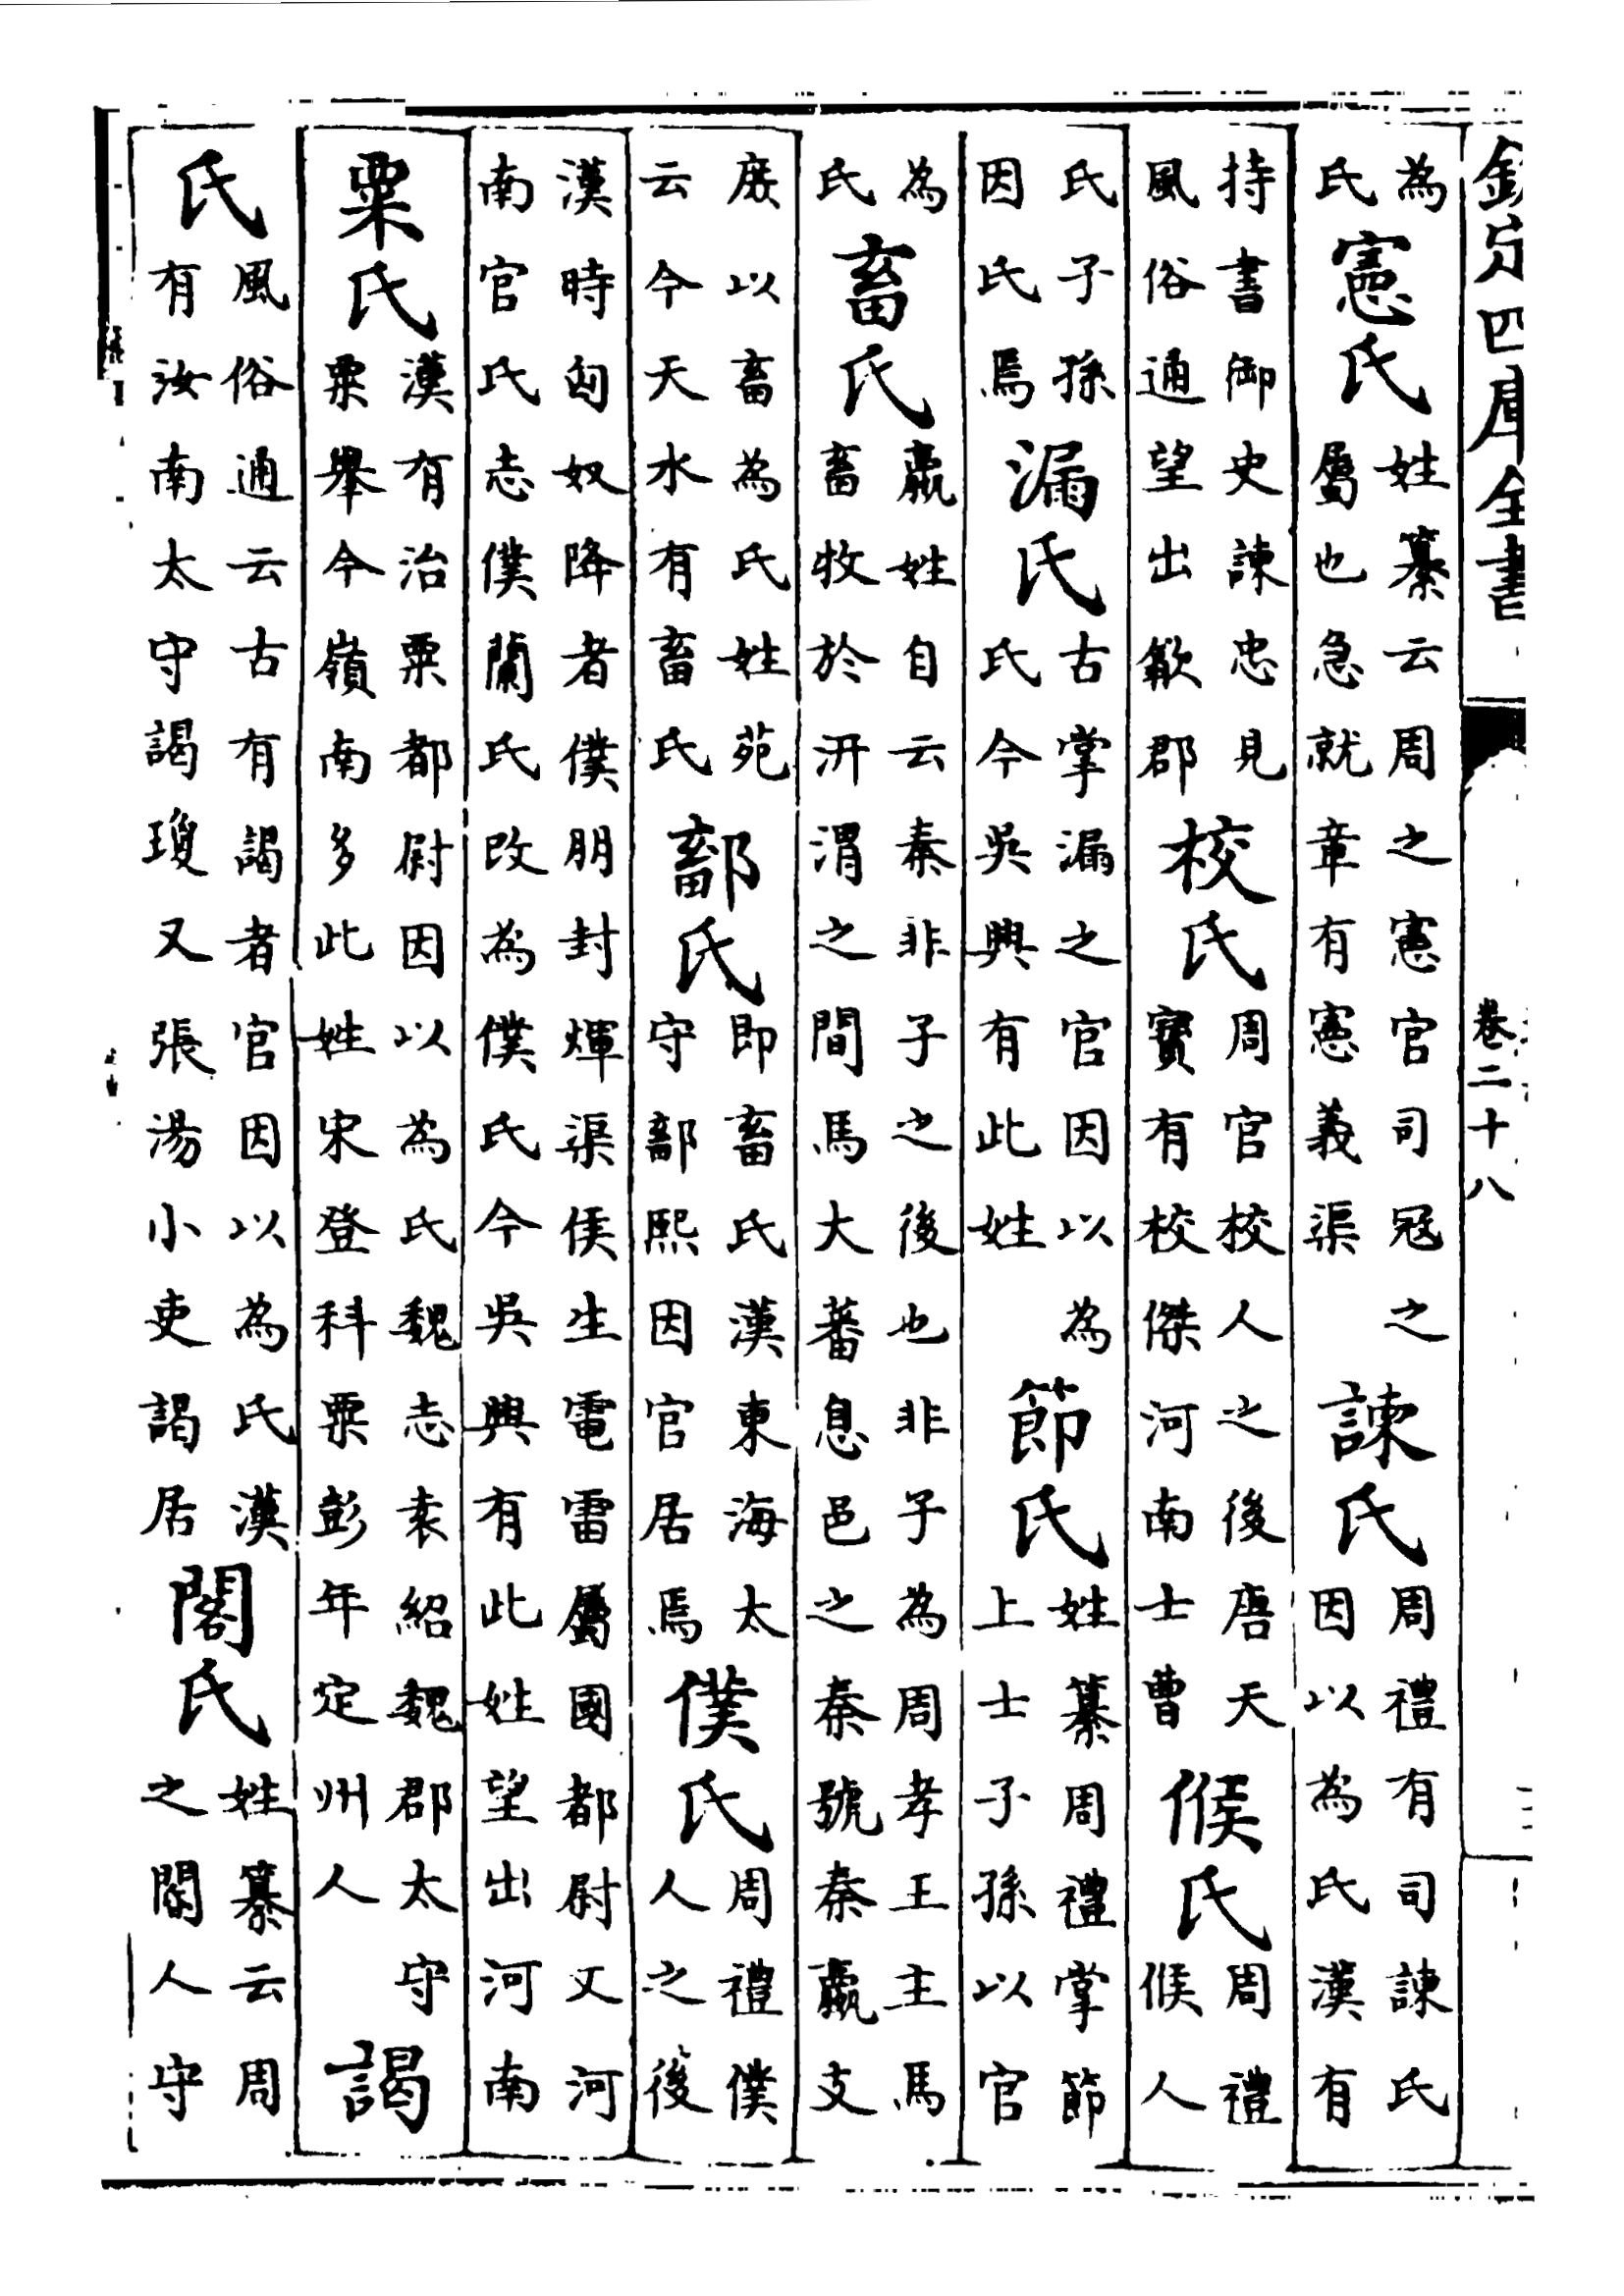 欽定四庫全書
卷二十八
為氏憲氏姓纂云周之憲官司冦之屬也急就章有憲義渠諫氏周禮有司諫氏因以為氏漢有
持書御史諫忠見風俗通望出歙郡校氏周官校人之後唐天寶有校傑河南士曹候氏周禮候人
氏子孫因氏焉漏氏古掌漏之官因以為氏今吳興有此姓節氏姓纂周禮掌節上士子孫以官
為氏畜氏嬴姓自云秦非子之後也非子為周孝王主馬畜牧於汧渭之間馬大蕃息邑之秦號秦嬴支
庻以畜為氏姓苑云今天水有畜氏鄐氏即畜氏漢東海太守鄐熙因官居焉僕氏周禮僕人之後
漢時匈奴降者僕朋封煇渠侯生電雷屬國都尉又河南官氏志僕蘭氏改為僕氏今吳興有此姓望出河南
粟氏漢有治粟都尉因以為氏魏志袁紹魏郡太守粟舉今嶺南多此姓宋登科粟彭年定州人謁
氏風俗通云古有謁者官因以為氏漢有汝南太守謁瓊又張湯小吏謁居閽氏姓纂云周之閽人守